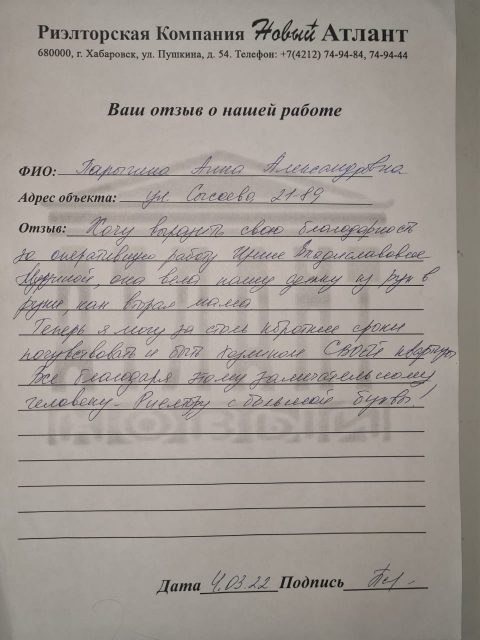 Риэлторская Компания Новый Атлант
680000, г. Хабаровск, ул. Пушкина, д. 54. Телефон: +7(4212) 74-94-84, 74-94-44
Ваш отзыв о нашей работе
ФИО: Парыгина Анна Александровна
Адрес объекта: ул. Сысоева 21-89
Отзыв: Хочу выразить свою благодарность
за оперативную работу Ирине Владиславовне
она вела нашу сделку из рук в
руки, как вторая мама
Теперь я могу за столь короткие сроки
почувствовать и быть хозяином СВОЕЙ квартиры
Все благодаря этому замечательному
человеку - Риелтору с большой буквы!
Дата 4.03.22 Подпись